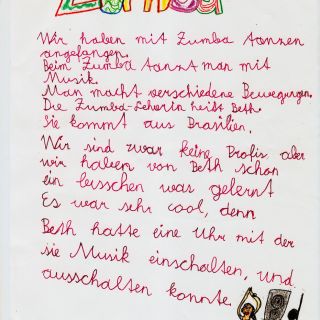 Zumba
Wir haben mit Zumba tanzen
angefangen.
Beim Zumba tanzt man mit
Musik.
Man macht verschiedene Bewegungen.
Die Zumba-Leherin heißt Beth.
Sie kommt aus Brasilien.
Wir sind zwar keine Profis aber
wir haben von Beth schon
ein bisschen was gelernt
Es war sehr cool, denn
Beth hatte eine Uhr mit der
sie Musik einschalten, und
ausschalten konnte.